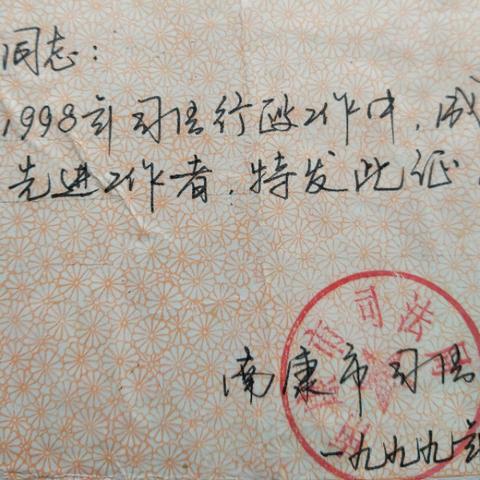 同志：
1998年司法行政工作中，成
先进工作者，特发此证
南康市司法
一九九九年
市司法